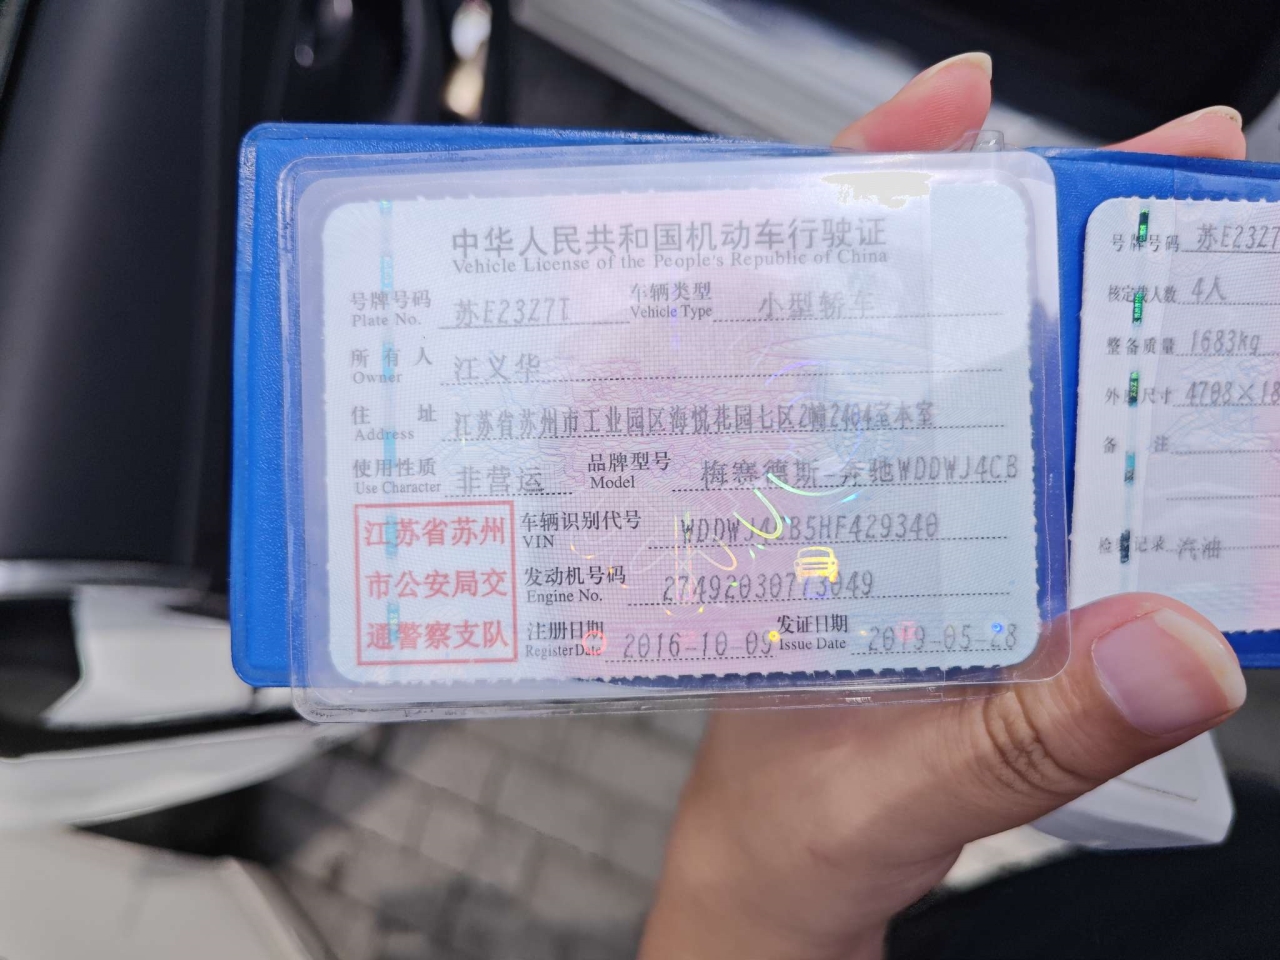 中华人民共和国机动车行驶证
Vehicle License of the People's Republic of China
号牌号码 苏E23Z7T 车辆类型 小型轿车
Plate No. Vehicle Type
所有人 江义华
Owner
住址 江苏省苏州市工业园区海悦花园七区2幢2404室本室
Address
使用性质 非营运 品牌型号 梅赛德斯-奔驰WDDWJ4CB
Use Character Model
江苏省苏州
市公安局交
通警察支队
车辆识别代号 WDDWJ4CB5HF429340
VIN
发动机号码 27492030773049
Engine No.
注册日期 2016-10-09 发证日期 2019-05-28
Register Date Issue Date
号牌号码 苏E23Z7
核定载人数 4人
整备质量 1683kg
外廓尺寸 4703×18
备注
检验记录 汽油